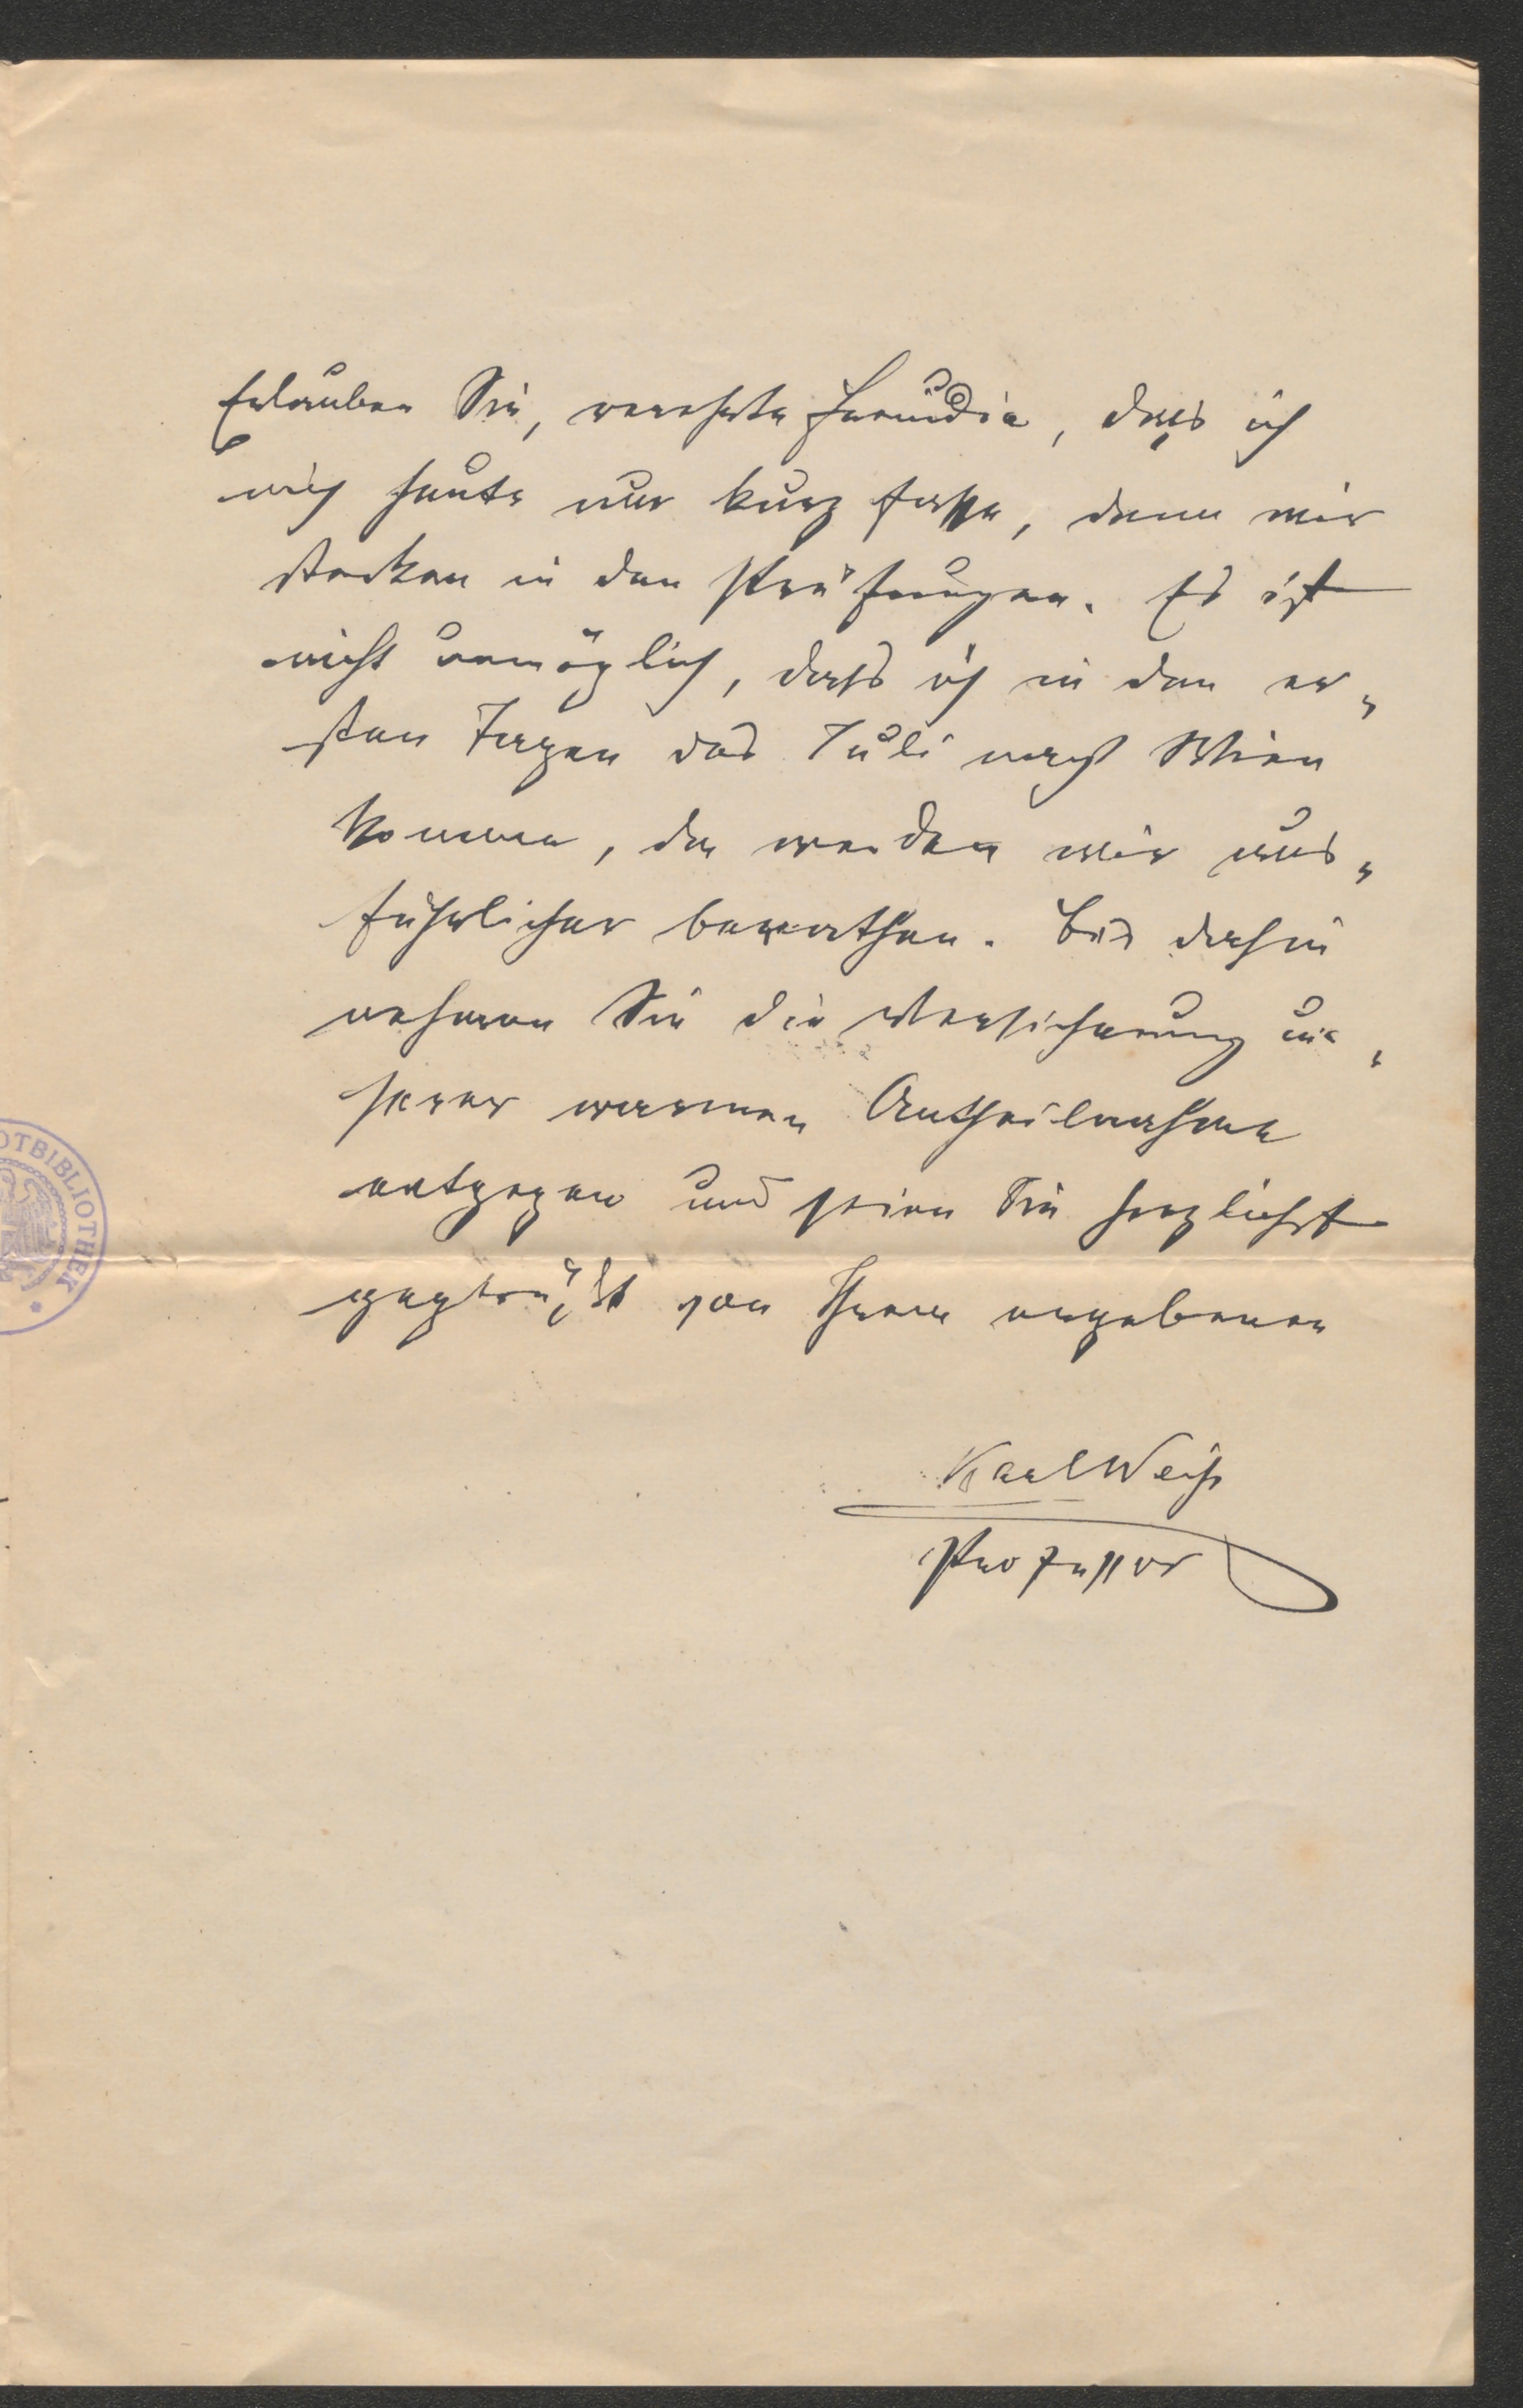 Erlauben Sie, verehrte Freundin, dass ich
mich heute nur kurz fasse, denn wir
stecken in den Prüfungen. Es ist
nicht unmöglich, dass ich in den er„
sten Tagen des Juli nach Wien
komme, da werden wir aus„
führlicher berathen. Bis dahin
nehmen Sie die Versicherung un„
serer warmen Antheilnahme
entgegen und seien Sie herzlichst
gegrüßt von Ihrem ergebenen
Karl Weiß
Professor
OTBIBLIOTHEK